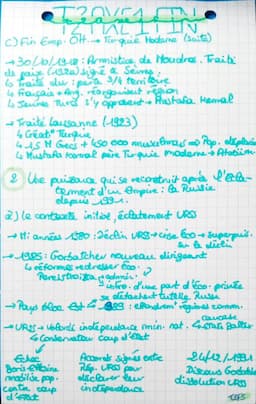 c) Fin Emp. Ott. → Turquie Moderne (suite)
→ 30/10/1918: Armistice de Moudros. Traité
de paix (1920) signé à Sèvres.
↳ Traité dur: perte 3/4 territoire
↳ Français + Ang. réorganisent région
↳ Jeunes Turcs s'y opposent → Mustafa Kemal
→ Traité Lausanne (1923)
↳ Créat° Turquie
↳ 1,5 M Grecs + 450 000 musulmans → Pop. déplacée
↳ Mustafa Kemal père Turquie moderne →
2 Une puissance qui se reconstruit après l'écla-
tement d'un Empire: la Russie
depuis 1991.
a) Le contexte initial, éclatement URSS
→ Mi années 1980: Déclin URSS → crise éco → superpuis.
sur le déclin
→ 1985: Gorbatchev nouveau dirigeant
↳ réformes redresser éco.
Perestroïka
↳ intro. d'une part d'éco. privée
se détachent tutelle Russe
→ Pays bloc Est 1989: régimes comm.
caucase
→ URSS → Volonté indépendance min. nat. → états Balte
↳ Conservateur coup d'état
Echec
Boris Eltsine
mobilise pop.
contre coup
d'état
Accords signés entre
Rép. URSS pour
déclarer leur
indépendance
26/12/1991
Discours
dissolution URSS